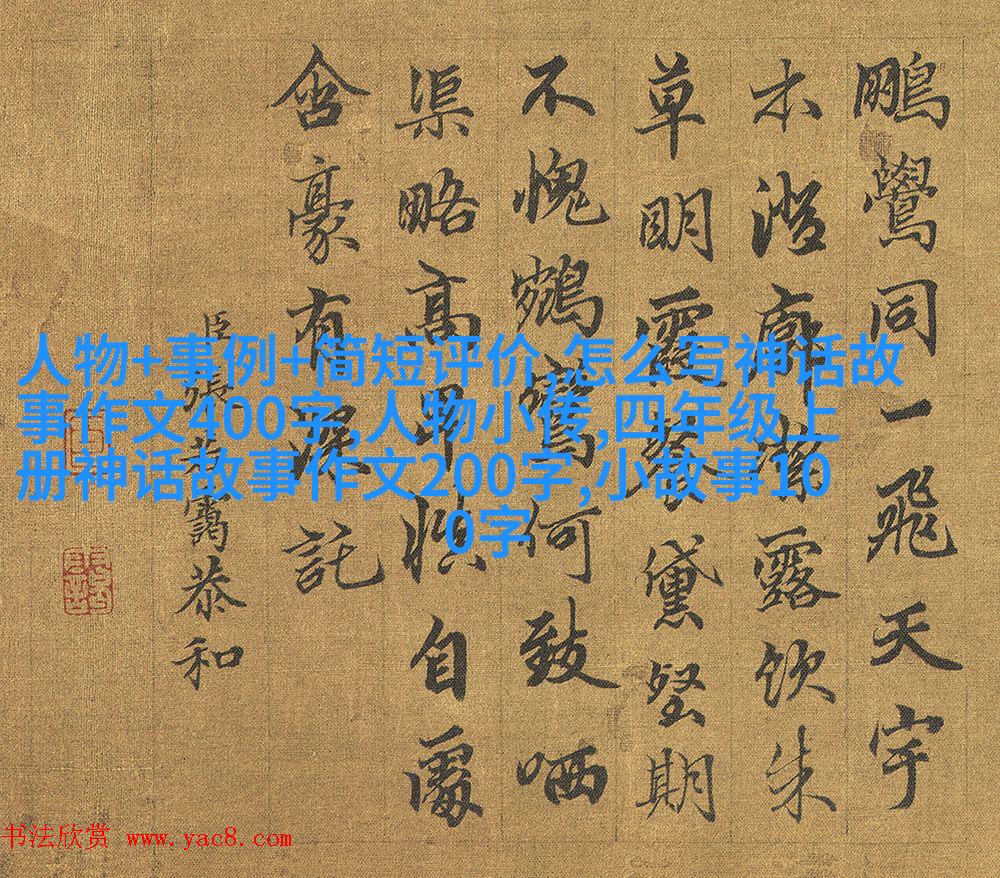 鵬鷽同一飛天宇
木澄廓落露飲朱
草明霞黛壑期
不愧鶴鸞何致哂
渠略高自屬
含豪有深託
臣張若靄恭和
人物+事例+简短评价,怎么写神话故
事作文400字,人物小传,四年级上
册神话故事作文200字,小故事10
0字
书法欣赏 www.yac8.com